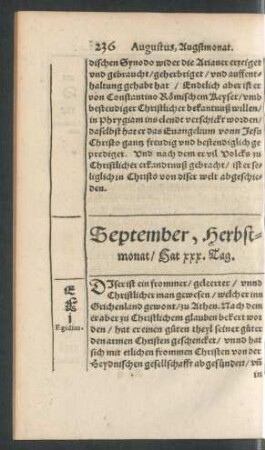 236 Augustus, Augstmonat.
dischen Synodo wider die Arianer erzeiget
vnd gebraucht / geherbriget / vnd auffent-
haltung gehabt hat / Endtlich aber ist er
von Constantino Römischem Keyser / vmb
bestendiger Christlicher bekantnuß willen /
in Phrygiam ins elend verschickt worden /
daselbst hat er das Euangelium vonn Jesu
Christo gantz freudig vnd bestendiglich ge
prediget. Vnd nach dem er vil Volcks zu
Christlicher erkandtnuß gebracht / ist er se-
liglich in Christo von diser welt abgeschie-
den.
September, Herbst-
monat / Hat xxx. Tag.
Egidius.
DIser ist ein frommer / geleerter / vnnd
Christlicher man gewesen / welcher inn
Griechenland gewont / zu Athen. Nach dem
er aber zu Christlichem glauben bekert wor
den / hat er einen gůten theyl seiner gůter
den armen Christen geschencket / vnnd hat
sich mit etlichen frommen Christen von der
Heydnischen gesellschafft abgesündert / vñ
in